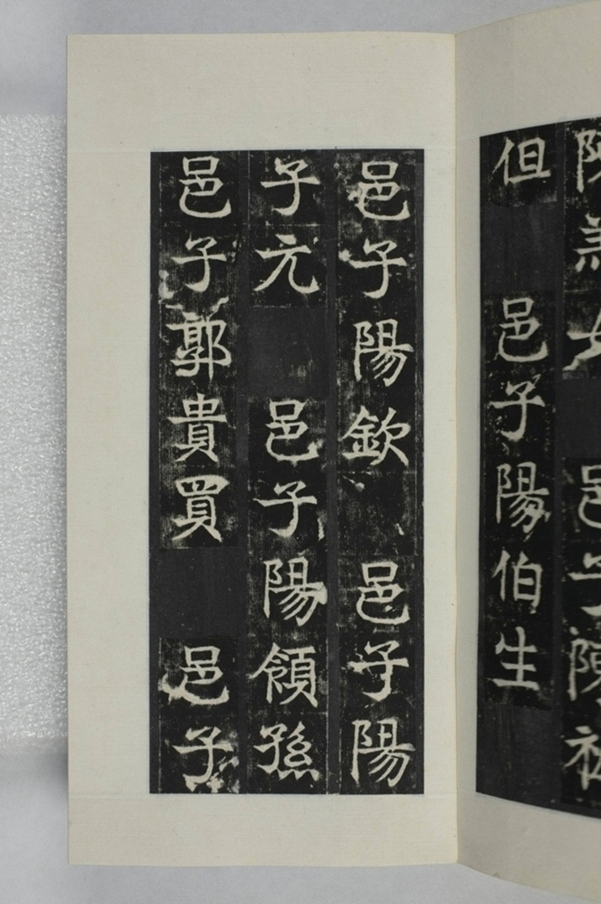 邑子陳祖
但 邑子陽伯生
邑子陽欽 邑子陽
子元 邑子陽領孫
邑子郭貴買 邑子